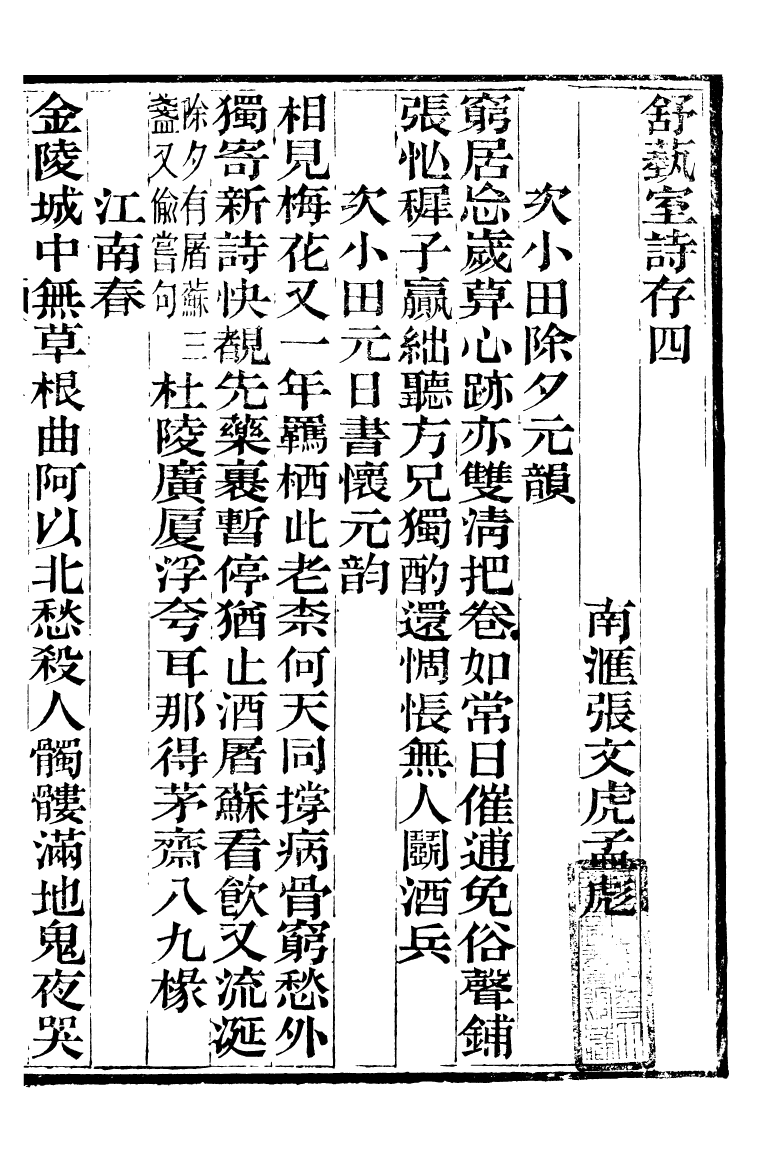 舒藝室詩存四
南滙張文虎孟彪
次小田除夕元韻
窮居忩歲算心跡亦雙淸把卷如常日催逋免俗聲鋪
張忪穉子贏絀聽方兄獨酌還惆悵無人鬭酒兵
次小田元日書懷元韵
相見梅花又一年羈栖此老柰何天同撐病骨窮愁外
獨寄新詩快覩先藥裹暫停猶止酒屠蘇看飮又流涎
除夕有屠蘇三
盞又偸嘗句
杜陵廣厦浮夸耳那得茅齋八九椽
江南春
金陵城中無草根曲阿以北愁殺人髑髏滿地鬼夜哭